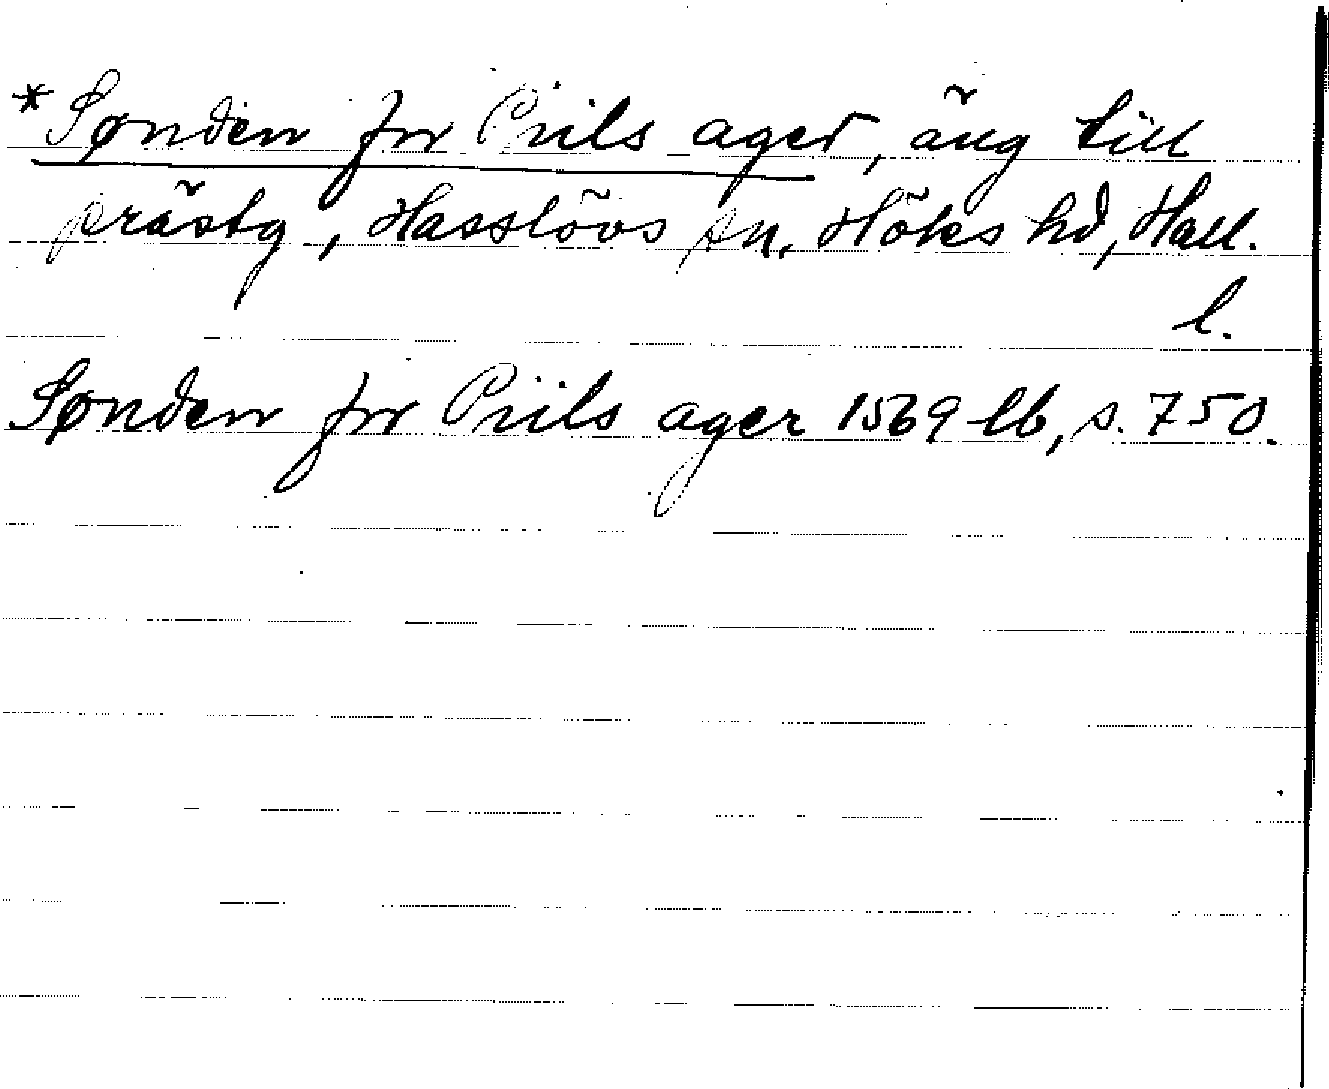 *Sønden for Piils ager, äng till
prästg, Hasslövs sn, Höks hd, Hall.
l.
Sønden for Piils ager 1569 lb, s. 750.